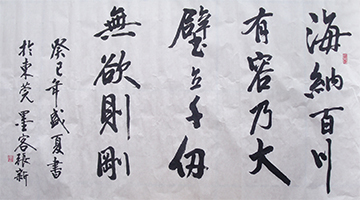 海納百川
有容乃大
壁立千仞
無欲則剛
癸巳年盛夏書
於東莞墨容張新